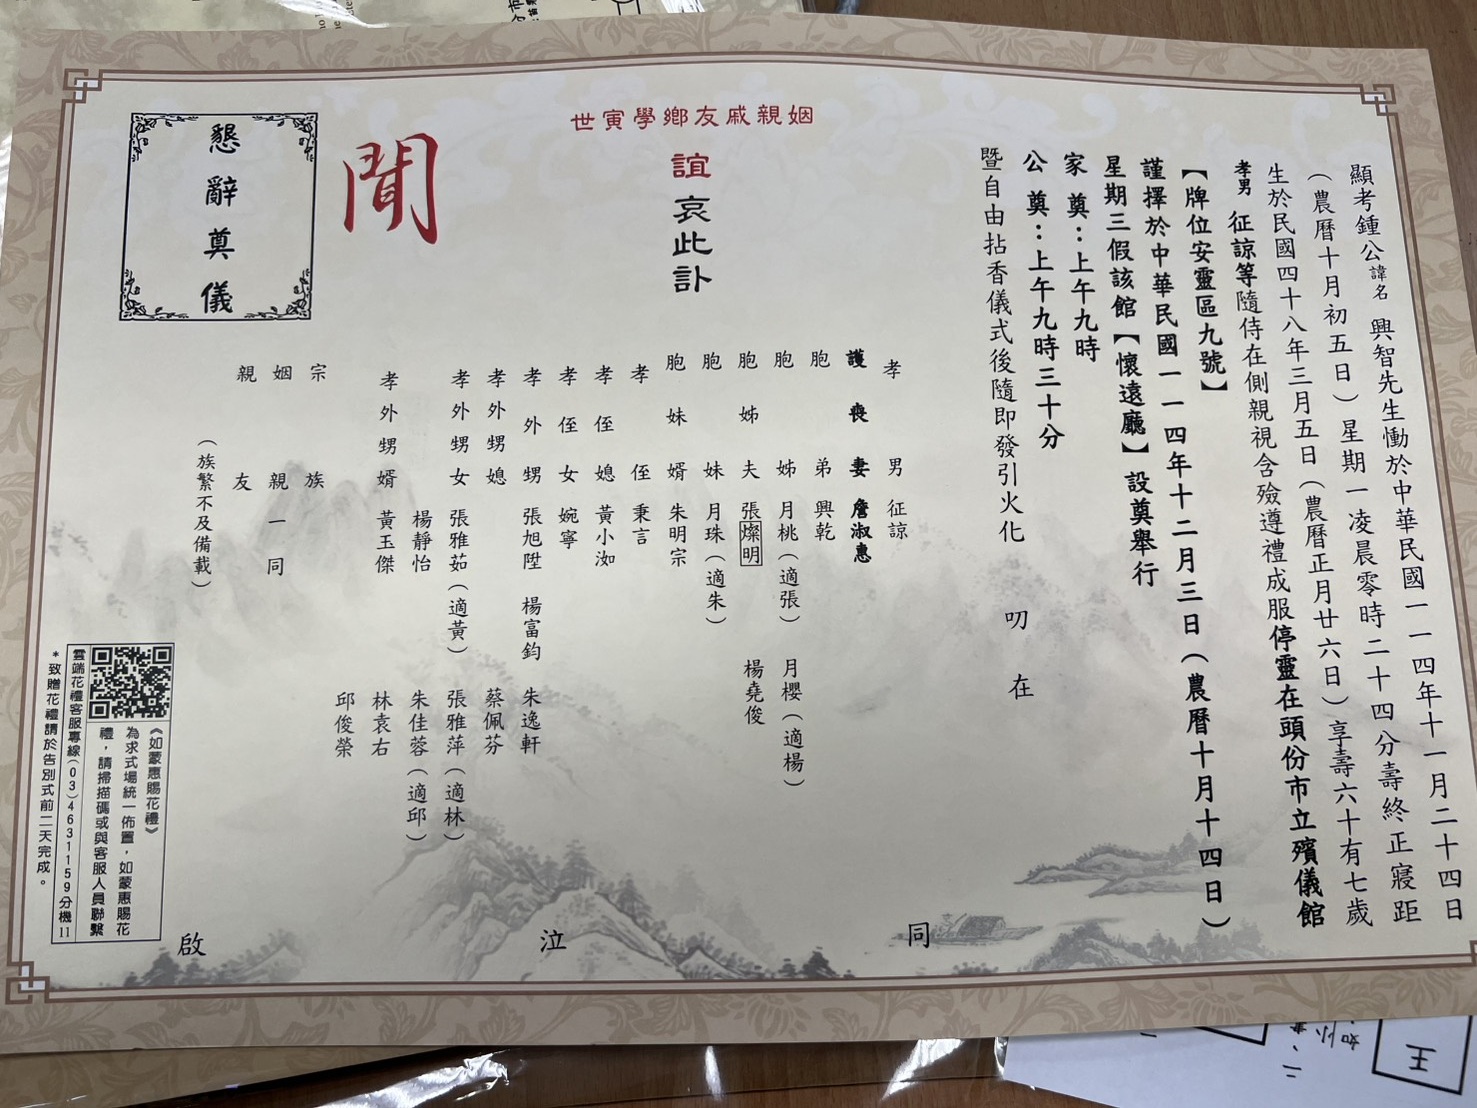 顯考鍾公諱名興智先生慟於中華民國一一四年十一月二十四日
（農曆十月初五日）星期一凌晨零時二十四分壽終正寢距
生於民國四十八年三月五日（農曆正月廿六日）享壽六十有七歲
孝男征諒等隨侍在側親視含殮遵禮成服停靈在頭份市立殯儀館
【牌位安靈區九號】
謹擇於中華民國一一四年十二月三日（農曆十月十四日）
星期三假該館【懷遠廳】設奠舉行
家奠：上午九時
公奠：上午九時三十分
暨自由拈香儀式後隨即發引火化 叨在
姻親戚友鄉學寅世
誼哀此訃
聞
懇辭奠儀
孝男 征諒
護喪妻 詹淑惠
胞弟 興乾
胞姊 月桃（適張） 月櫻（適楊）
胞姊夫 張燦明 楊堯俊
胞妹 月珠（適朱）
胞妹婿 朱明宗
孝侄 秉言
孝侄媳 黃小洳
孝侄女 婉寧
孝外甥 張旭陞 楊富鈞 朱逸軒
孝外甥媳 蔡佩芬
孝外甥女 張雅茹（適黃） 張雅萍（適林）
楊靜怡 朱佳蓉（適邱）
孝外甥婿 黃玉傑 林袁右
邱俊榮
宗族
姻親一同
親友
（族繁不及備載）
同泣啟
《如蒙惠賜花禮》
為求式場統一佈置，如蒙惠賜花
禮，請掃描碼或與客服人員聯繫
雲端花禮客服專線(03)4631159分機11
*致贈花禮請於告別式前二天完成。